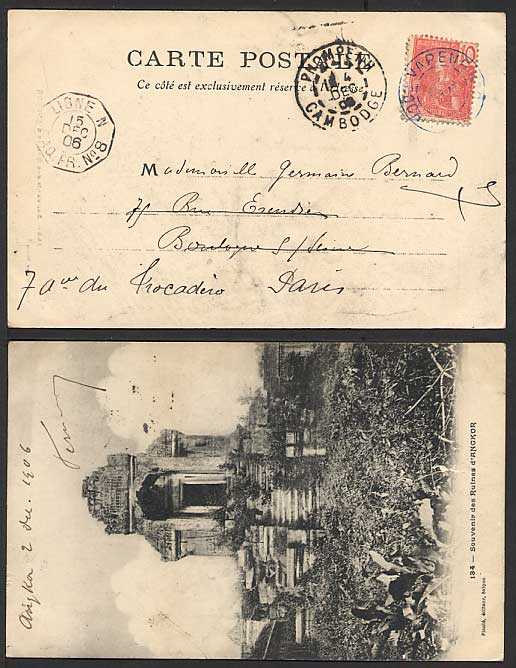 CARTE POSTALE
Ce côté est exclusivement réservé à l'adresse
PHOMPENH
4
DEC
06
CAMBODGE
10
VAPEUR
LIGNE N
15
DEC
06
PAQ. FR. Nº 8
Mademoiselle Germain Bernard
75 Rue
Boulogne s/Seine
7 ave du Trocadéro Paris
Angkor 2 dec 1906
134 — Souvenir des Ruines d'ANGKOR
Planté, éditeur, Saigon